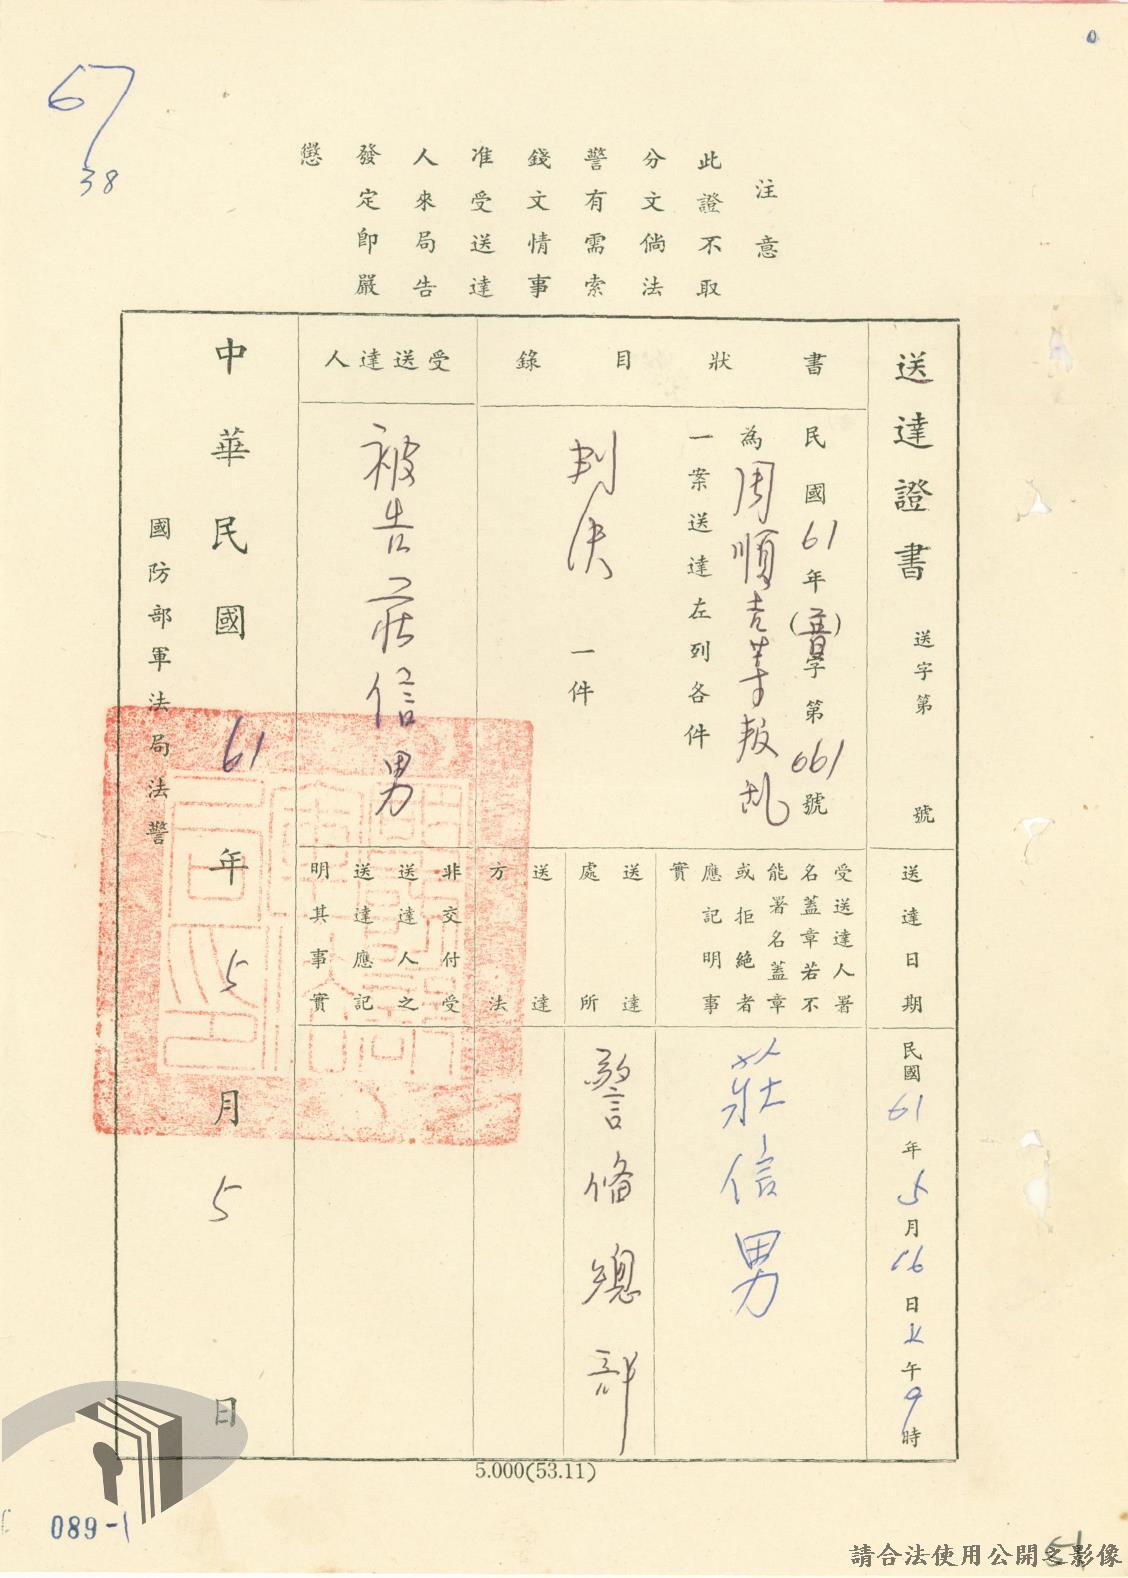 67
38
注意
此證不取
分文倘法
警有需索
錢文情事
准受送達
人來局告
發定即嚴
懲
送達證書
送字第 號
送達日期
民國61年5月16日上午9時
書狀目錄
民國61年(普)字第061號
為周順吉等叛乱
一案送達左列各件
判决 一件
受送達人署
名蓋章若不
能署名蓋章
或拒絶者
應記明事
實
莊信男
送達處所
警俻總部
送達方法
受送達人
被告莊信男
非交付受
送達人之
送達應記
明其事實
中華民國61年5月5日
國防部軍法局法警
5.000(53.11)
089-1
51
請合法使用公開之影像